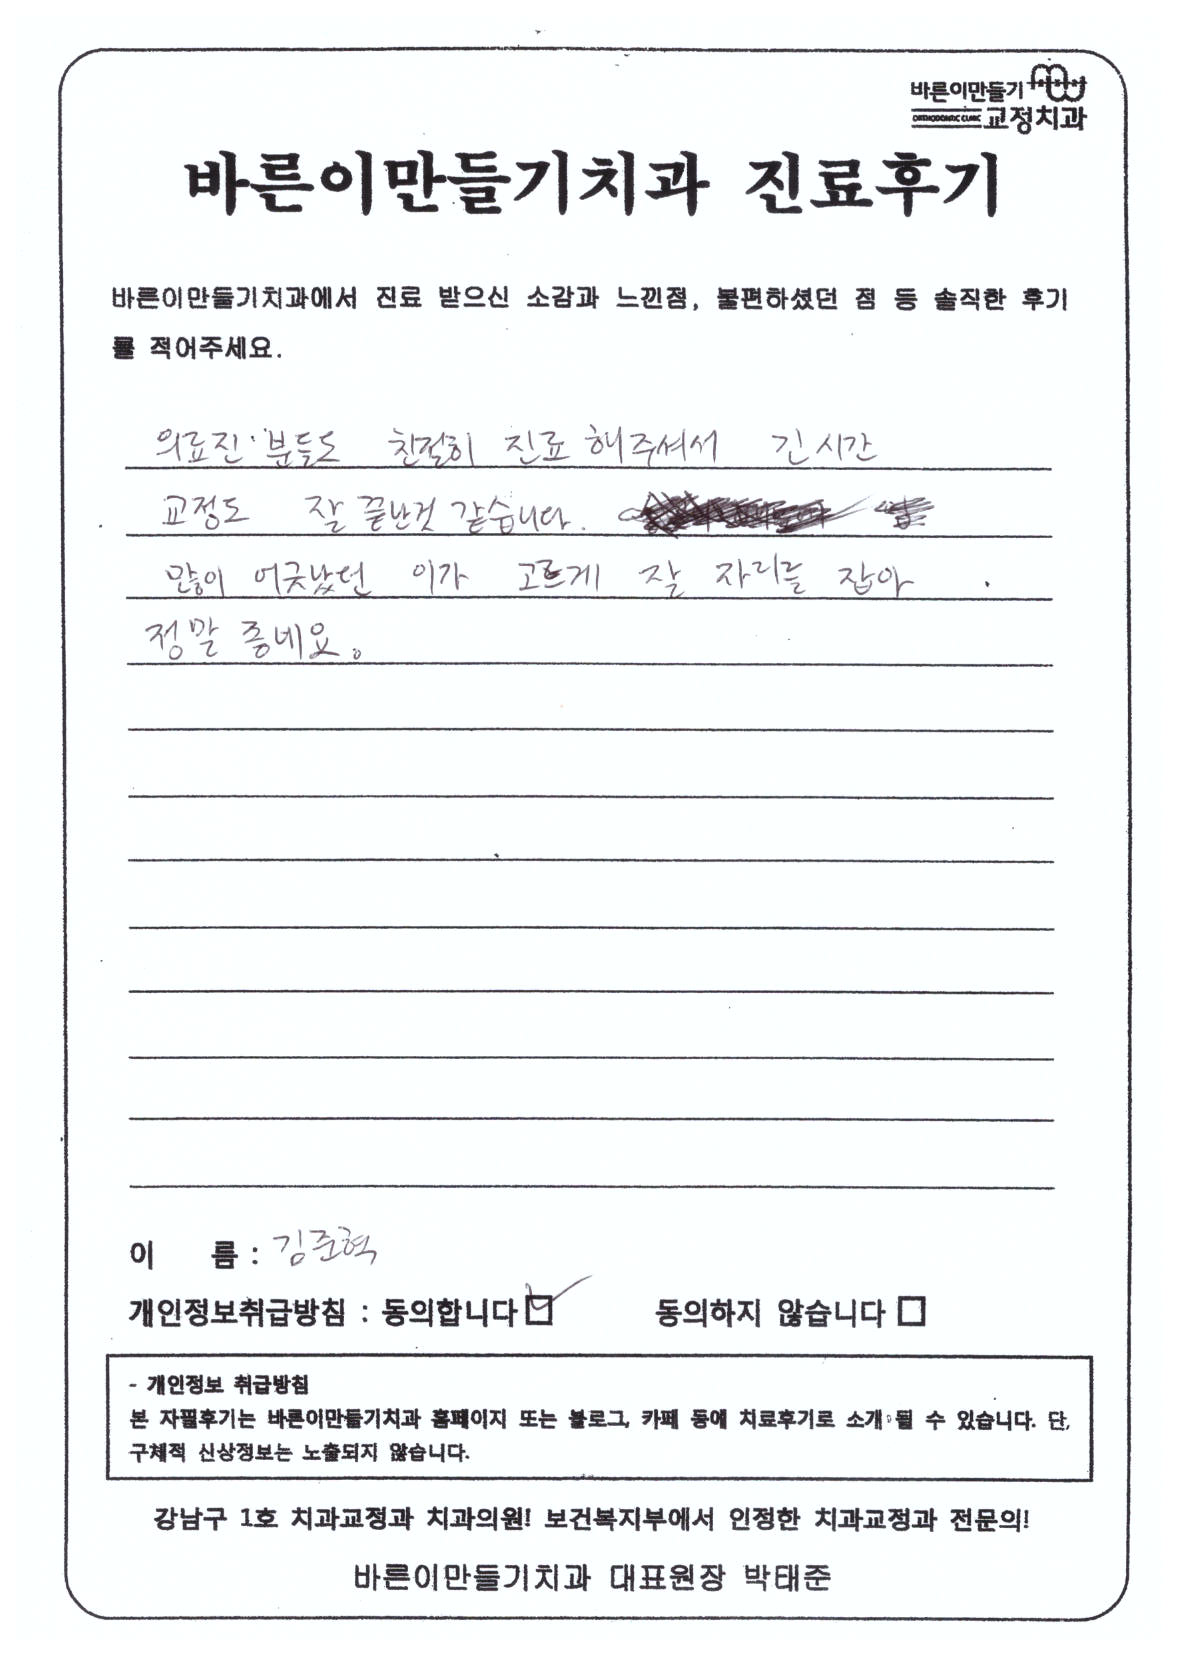 바른이만들기
ORTHODONTIC CLINIC 교정치과
바른이만들기치과 진료후기
바른이만들기치과에서 진료 받으신 소감과 느낀점, 불편하셨던 점 등 솔직한 후기
를 적어주세요.
의료진 분들도 친절히 진료 해주셔서 긴 시간
교정도 잘 끝난것 같습니다.
많이 어긋났던 이가 고르게 잘 자리를 잡아
정말 좋네요.
이 름 : 김준혁
개인정보취급방침 : 동의합니다 동의하지 않습니다
- 개인정보 취급방침
본 자필후기는 바른이만들기치과 홈페이지 또는 블로그, 카페 등에 치료후기로 소개 될 수 있습니다. 단,
구체적 신상정보는 노출되지 않습니다.
강남구 1호 치과교정과 치과의원! 보건복지부에서 인정한 치과교정과 전문의!
바른이만들기치과 대표원장 박태준